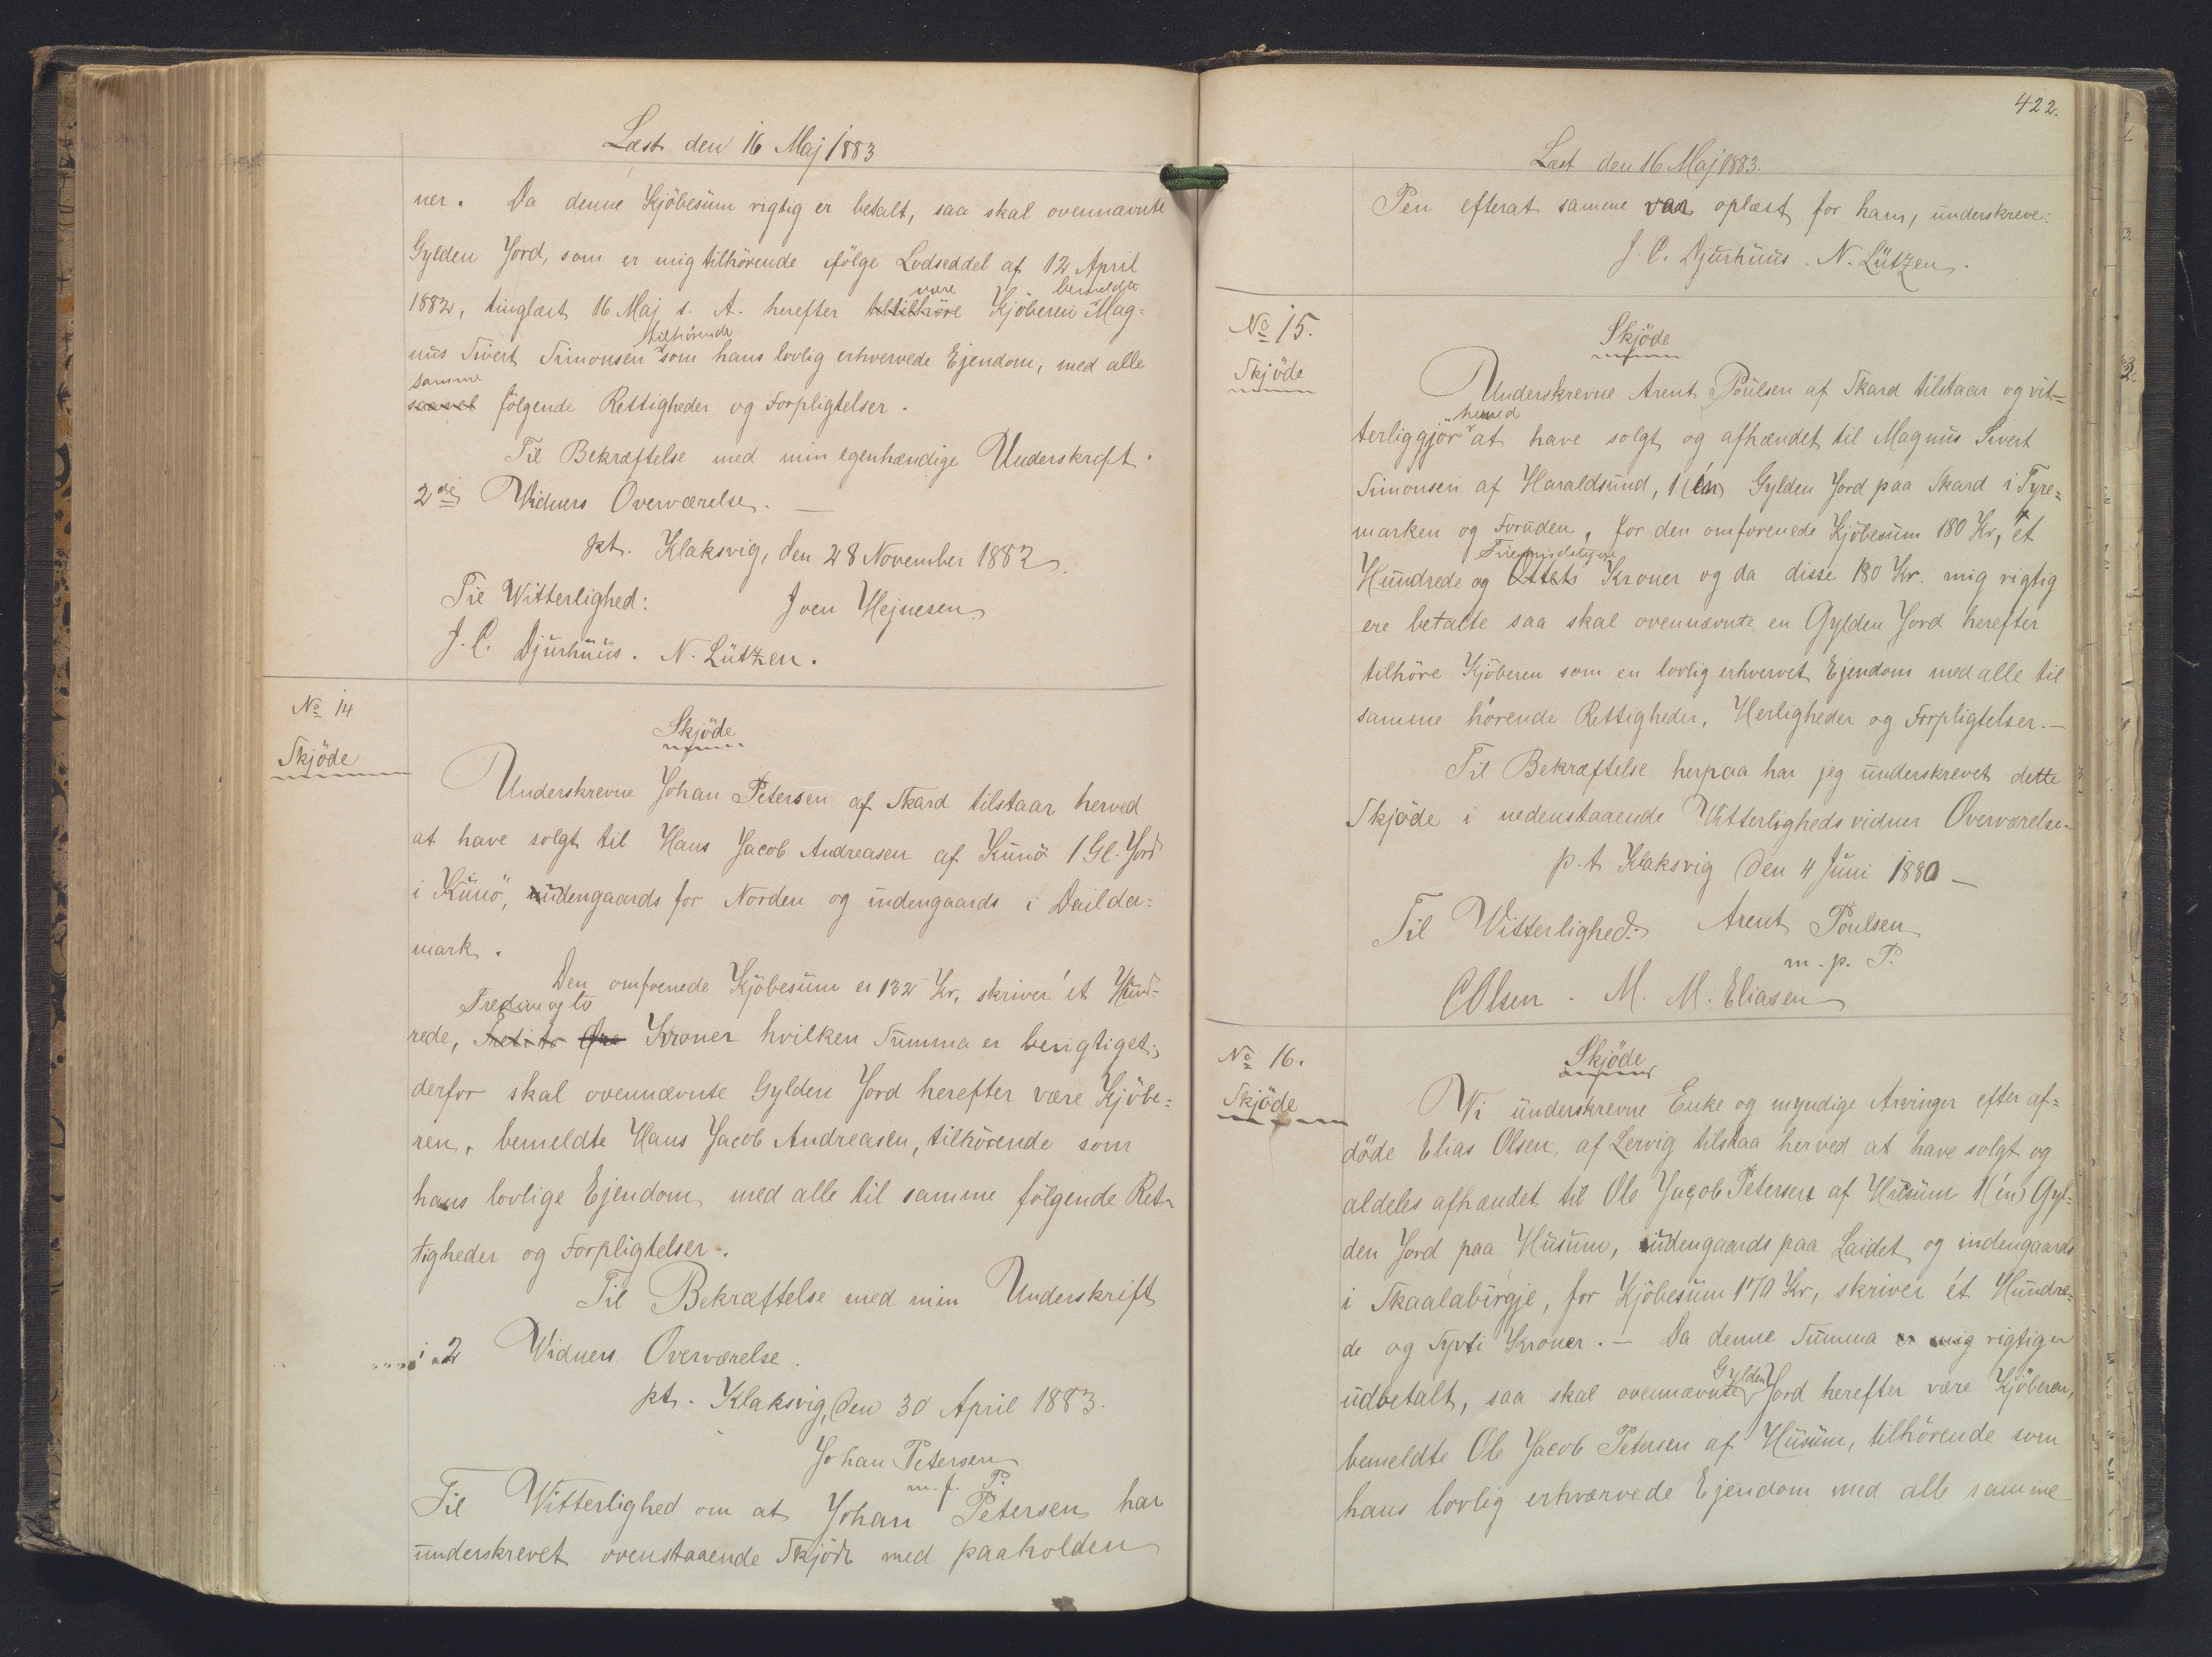 Læst den 16 Maj 1883
ner. Da denne Kjöbesum rigtig er betalt, saa skal ovennævnte
Gylden Jord, som er mig tilhörende ifölge Lodseddel af 12 April
1882, tinglæst 16 Maj s. A. herefter være Kjöberen bemeldte Mag=
nus Sivert Simonsen tilhörende som hans lovlig erhvervede Ejendom, med alle
samme fölgende Rettigheder og Forpligtelser.
Til Bekræftelse med min egenhændige Underskrift.
2de Vidners Overværelse. —
pt. Klaksvig, den 28 November 1882.
Til Witterlighed: Joen Hejnesen
J. C. Djurhuus. N. Lützen.
No 14
Skjöde
Skjöde
Underskrevne Johan Petersen af Skard tilstaar herved
at have solgt til Hans Jacob Andreasen af Kunö 1 Gl. Jord
i Kunö, udengaards for Norden og indengaards i Dailda=
mark.
Den omforenede Kjöbesum er 132 Kr, skriver ét Hund=
rede, Tredive og to Kroner hvilken Summa er berigtiget;
derfor skal ovennævnte Gylden Jord herefter være Kjöbe=
ren, bemeldte Hans Jacob Andreasen, tilhörende som
hans lovlige Ejendom med alle til samme fölgende Ret=
tigheder og Forpligtelser.
Til Bekræftelse med min Underskrift
i 2 Vidners Overværelse.
pt. Klaksvig, den 30 April 1883.
Johan Petersen
m. f. P.
Til Witterlighed om at Johan Petersen har
underskrevet ovenstaaende Skjöde med paaholden
422.
Læst den 16 Maj 1883.
Pen efterat samme var oplæst for ham, underskreve:
J. C. Djurhuus. N. Lützen.
No 15.
Skjöde
Skjöde
Underskrevne Arent Poulsen af Skard tilstaar og vit=
terliggjör herved at have solgt og afhændet til Magnus Sivert
Simonsen af Haraldsund, 1 (én) Gylden Jord paa Skard i Tyre=
marken og Foruden, for den omforenede Kjöbesum 180 Kr, ét
Hundrede og Firesindstyve Kroner og da disse 180 Kr. mig rigtig
ere betalte saa skal ovennævnte en Gylden Jord herefter
tilhöre Kjöberen som en lovlig erhvervet Ejendom med alle til
samme hörende Rettigheder, Herligheder og Forpligtelser. —
Til Bekræftelse herpaa har jeg underskrevet dette
Skjöde i nedenstaaende Vitterligheds vidner Overværelse.
p. t Klaksvig den 4 Juni 1880 —
Til Witterlighed: Arent Poulsen
m. p. P.
C Olsen. M. M. Eliasen
No 16.
Skjöde
Skjöde
Vi underskrevne Enke og myndige Arvinger efter af=
döde Elias Olsen af Lervig tilstaa herved at have solgt og
aldeles afhændet til Ole Jacob Petersen af Husum 1 (én) Gyl=
den Jord paa Husum, udengaards paa Laidet og indengaards
i Skaalabirgje, for Kjöbesum 170 Kr, skriver ét Hundre=
de og Syvti Kroner. — Da denne Summa rigtig er
udbetalt, saa skal ovennævnte Gylden Jord herefter være Kjöberen,
bemeldte Ole Jacob Petersen af Husum, tilhörende som
hans lovlig erhværvede Ejendom med alle samme